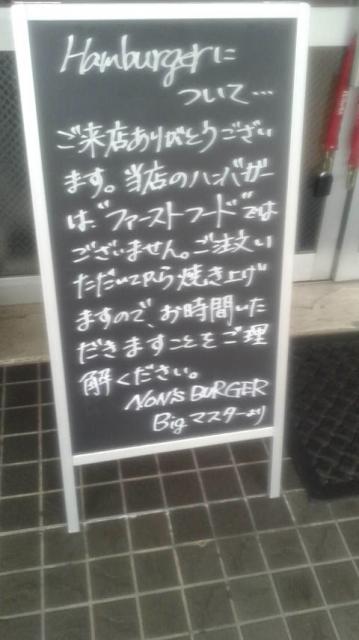 Hamburgerに
ついて…
ご来店ありがとうござい
ます。当店のハンバーガー
は、"ファーストフード"では
ございません。ご注文い
ただいてから焼き上げ
ますので、お時間いた
だきますことをご理
解ください。
NON'S BURGER
Big マスターより